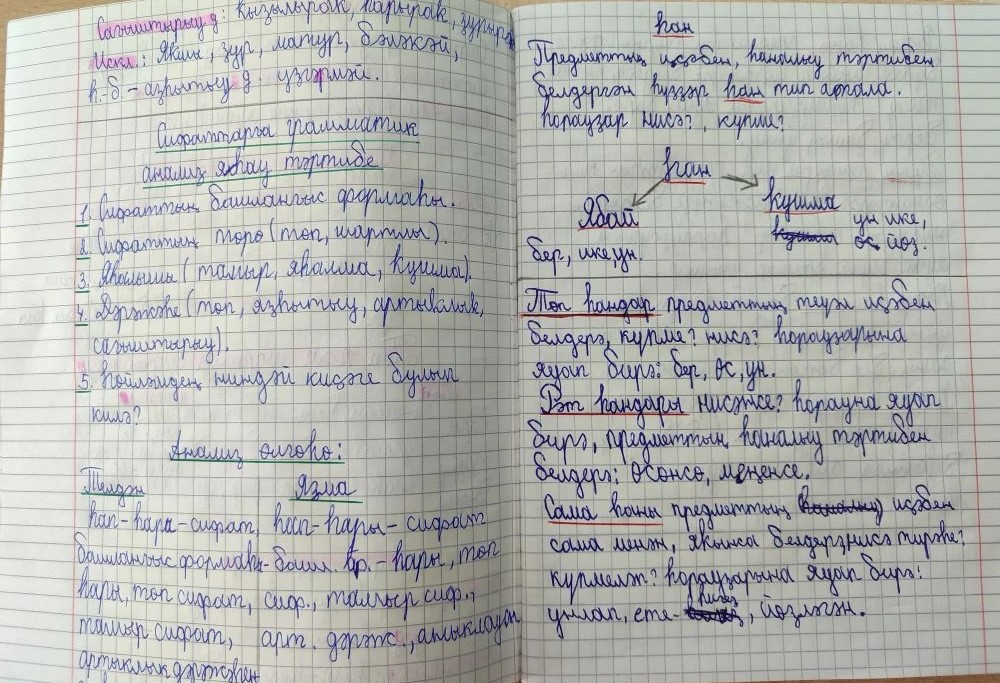 Сағыштырыу д: қызылырак, һарырак, зурырак
Искл.: Яҡшы, зур, матур, бәләкәй,
һ.-б.- аҙһытыу д. үзгәрмәй.
Сифаттарға грамматик
анализ яһау тәртибе
1. Сифаттың башланғыс формаһы.
2. Сифаттың төрө (төп, шартлы).
3. Яһалышы (тамыр, яһалма, ҡушма).
4. Дәрәжәһе (төп, аҙһытыу, артыклык,
сағыштырыу).
5. Һөйләмдең ниндәй киҫәге булып
килә?
Анализ өлгөһө:
Телдән Язма
һап-һары-сифат, һап-һары - сифат
башланғыс формаһы-башл. ф. - һары, төп
һары, төп сифат, сиф., тамыр сиф.,
тамыр сифат, арт. дәрәж.,
артыклык дәрәжәһен
һан
Предметтың иҫәбен, һаналыу тәртибен
белдергән һүҙҙәр һан тип атала.
Һорауҙар нисә?, күпме?
һан
Ябай ҡушма
ун ике,
бер, ике, ун. өс йөҙ.
Төп һандар предметтың теүәл иҫәбен
белдерә, күпме? нисә? һорауҙарына
яуап бирә: бер, өс, ун.
Рәт һандары нисәнсе? һорауына яуап
бирә, предметтың һаналыу тәртибен
белдерә: өсөнсө, меңенсе.
Сама һаны предметтың иҫәбен
сама менән, якынса белдерә, нисә тирәһе?
күпмеләп? һорауҙарына яуап бирә:
унлап, ете-һигеҙ, йөҙләгән.